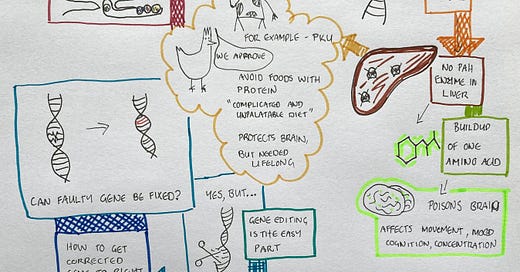 FOR EXAMPLE - PKU
WE APPROVE
AVOID FOODS WITH
PROTEIN
"COMPLICATED AND
UNPALATABLE DIET"
PROTECTS BRAIN,
BUT NEEDED
LIFELONG
NO PAH
ENZYME IN
LIVER
BUILDUP
OF ONE
AMINO ACID
POISONS BRAIN
AFFECTS MOVEMENT, MOOD
COGNITION, CONCENTRATION
CAN FAULTY GENE BE FIXED?
YES, BUT...
GENE EDITING
IS THE EASY
PART
HOW TO GET
CORRECTED